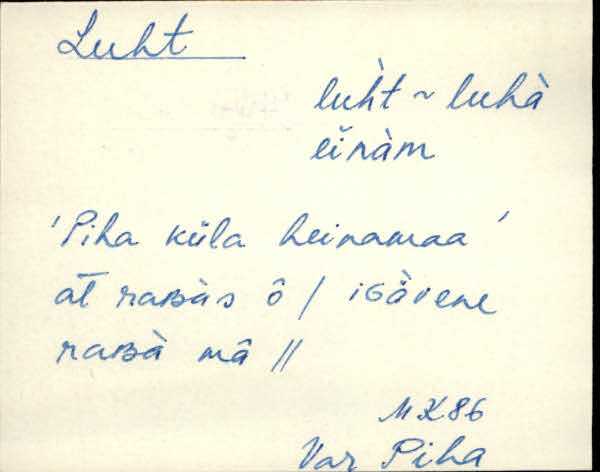 Luht
lùh̀t ~ luhà
eĭnàm
'Piha küla heinamaa'
āt raʙàs ô / iɢävene
raʙà mâ //
MK86
Var Piha